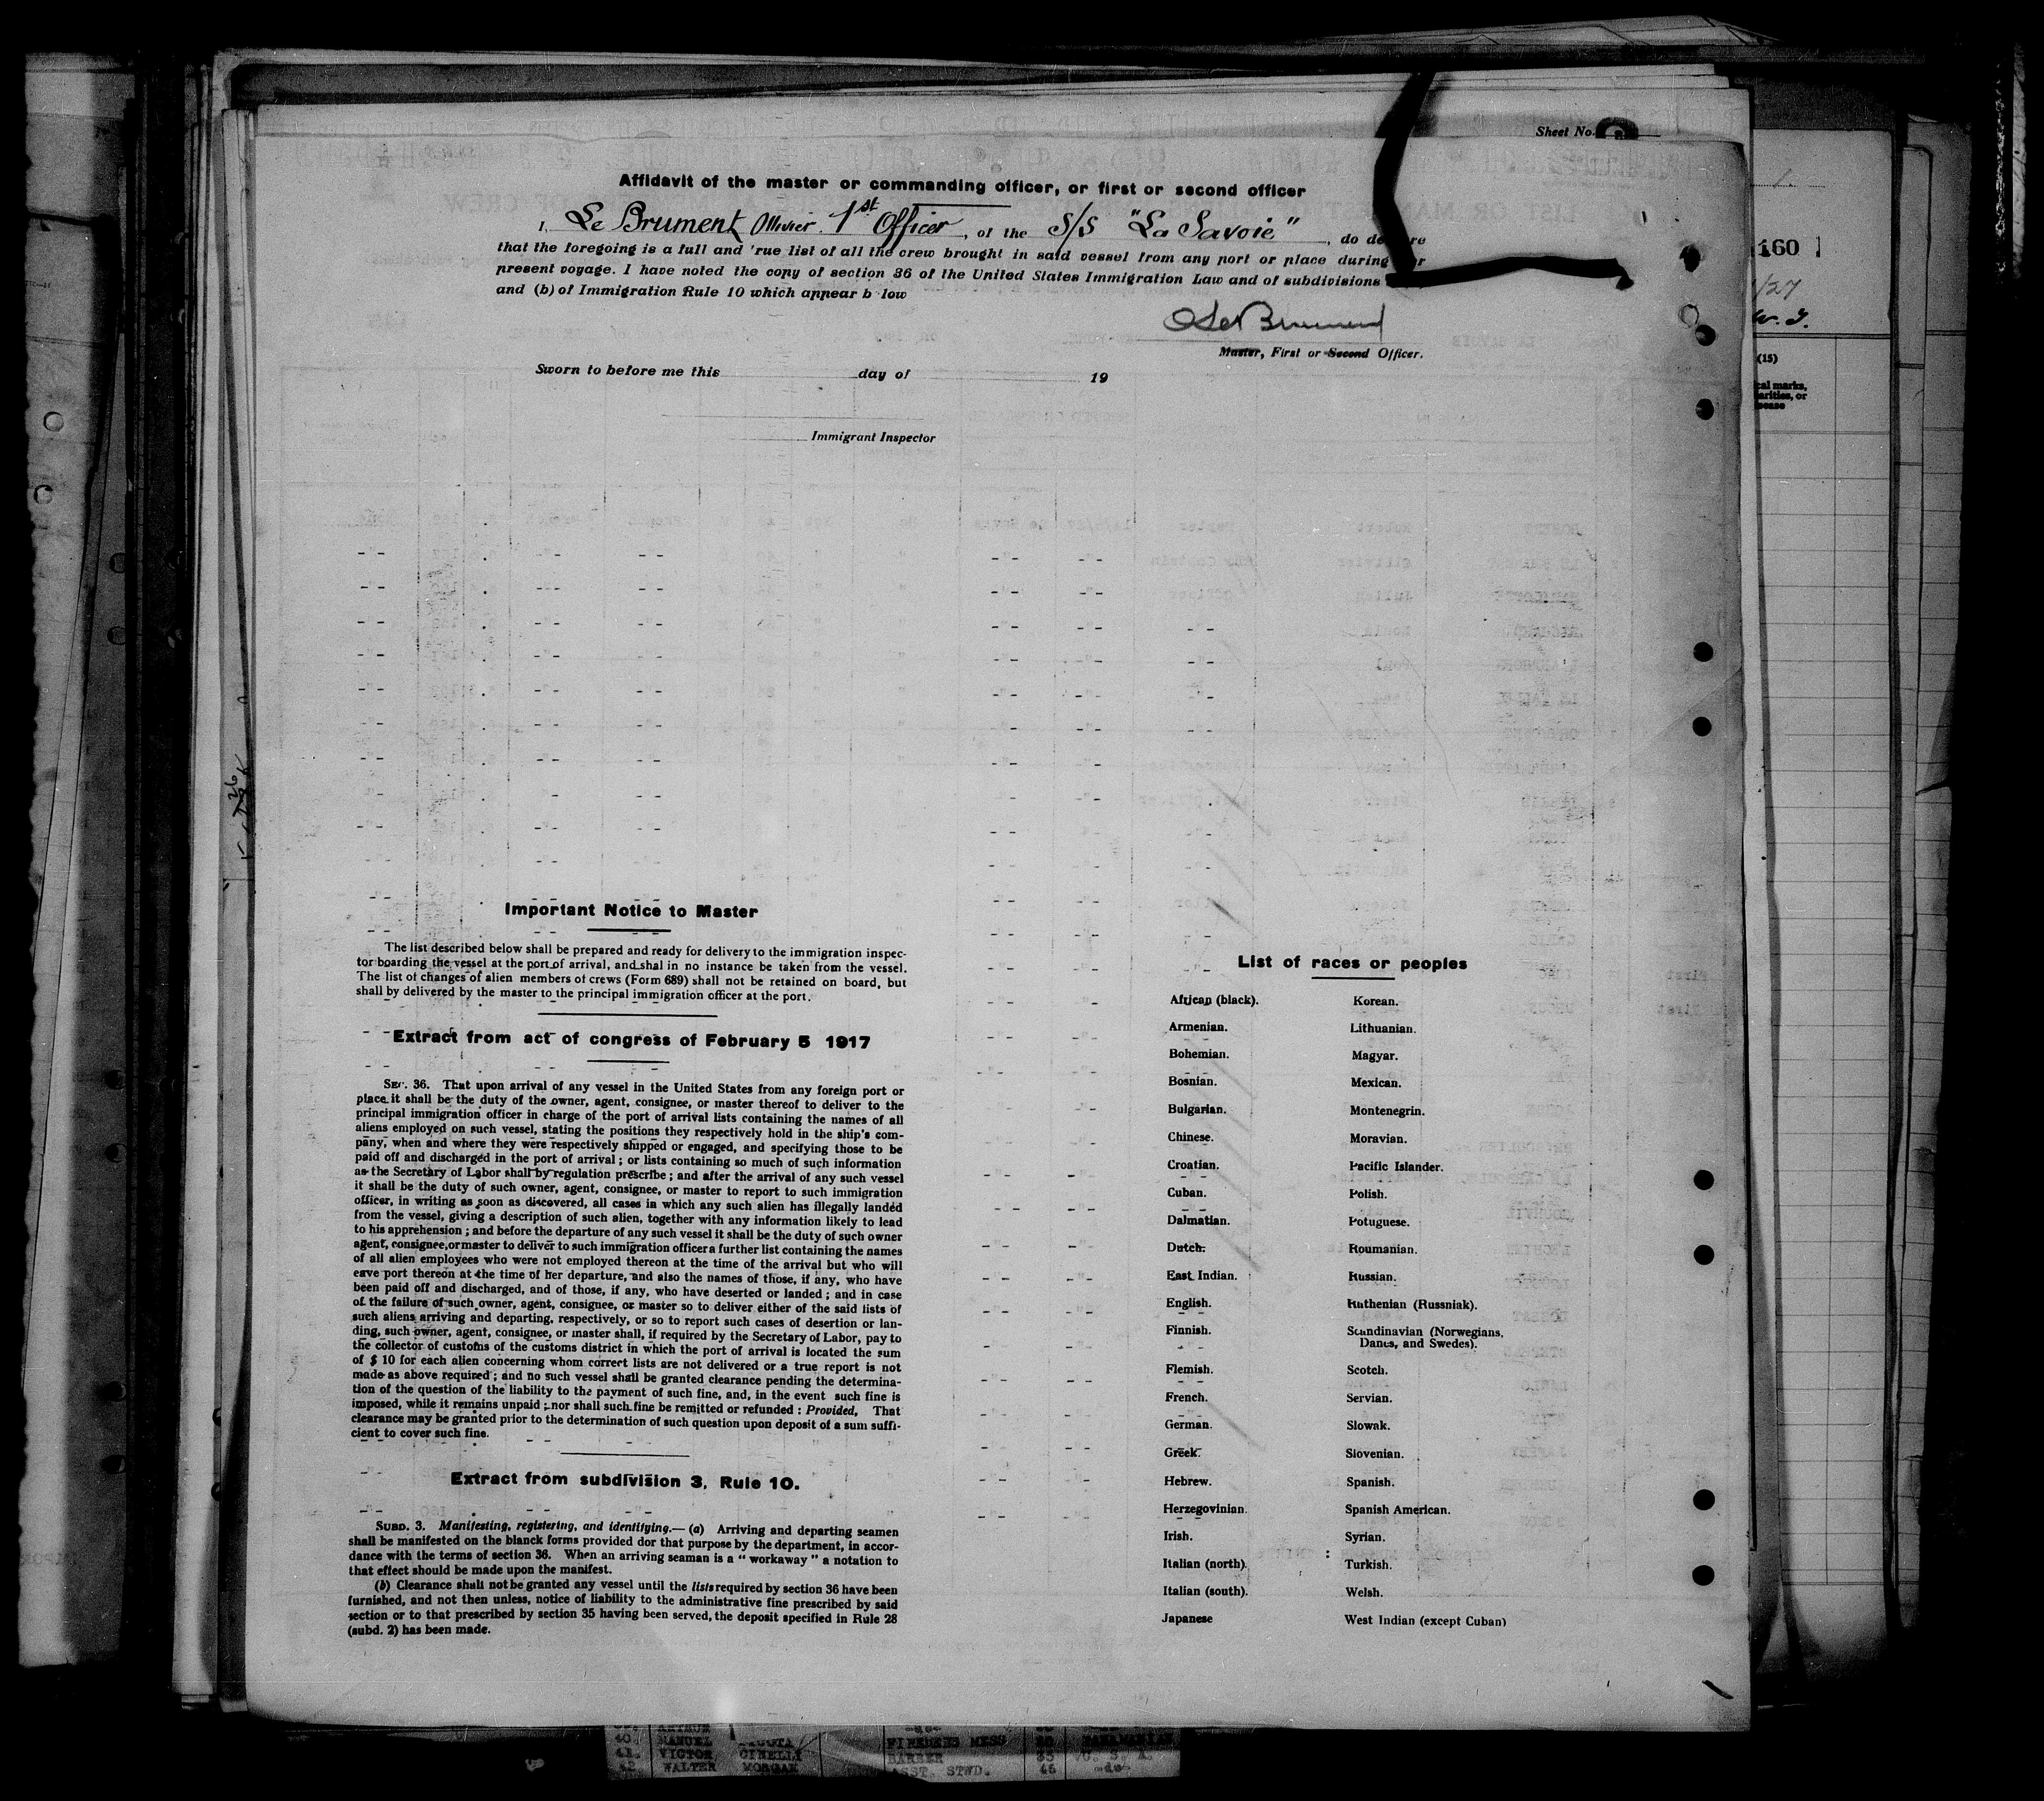 Sheet No.
Affidavit of the master or commanding officer, or first or second officer
I, Le Brument Ollivier 1st Officer, of the S/S "La Savoie", do de re
that the foregoing is a full and 'rue list of all the crew brought in said vessel from any port or place during r
present voyage. I have noted the copy of section 36 of the United States Immigration Law and of subdivisions
and (b) of Immigration Rule 10 which appear b low
OLeBrument
Master, First or Second Officer.
Sworn to before me this day of 19
Immigrant Inspector
160
/27
(15)
cal marks,
arities, or
sease
Important Notice to Master
The list described below shall be prepared and ready for delivery to the immigration inspec-
tor boarding the vessel at the port of arrival, and shal in no instance be taken from the vessel.
The list of changes of alien members of crews (Form 689) shall not be retained on board, but
shall by delivered by the master to the principal immigration officer at the port.
Extract from act of congress of February 5 1917
SEC. 36. That upon arrival of any vessel in the United States from any foreign port or
place it shall be the duty of the owner, agent, consignee, or master thereof to deliver to the
principal immigration officer in charge of the port of arrival lists containing the names of all
aliens employed on such vessel, stating the positions they respectively hold in the ship's com-
pany, when and where they were respectively shipped or engaged, and specifying those to be
paid off and discharged in the port of arrival ; or lists containing so much of such information
as the Secretary of Labor shall by regulation prescribe ; and after the arrival of any such vessel
it shall be the duty of such owner, agent, consignee, or master to report to such immigration
officer, in writing as soon as discovered, all cases in which any such alien has illegally landed
from the vessel, giving a description of such alien, together with any information likely to lead
to his apprehension ; and before the departure of any such vessel it shall be the duty of such owner
agent, consignee, or master to deliver to such immigration officer a further list containing the names
of all alien employees who were not employed thereon at the time of the arrival but who will
eave port thereon at the time of her departure, and also the names of those, if any, who have
been paid off and discharged, and of those, if any, who have deserted or landed ; and in case
of the failure of such owner, agent, consignee, or master so to deliver either of the said lists of
such aliens arriving and departing, respectively, or so to report such cases of desertion or lan-
ding, such owner, agent, consignee, or master shall, if required by the Secretary of Labor, pay to
the collector of customs of the customs district in which the port of arrival is located the sum
of $ 10 for each alien concerning whom correct lists are not delivered or a true report is not
made as above required ; and no such vessel shall be granted clearance pending the determina-
tion of the question of the liability to the payment of such fine, and, in the event such fine is
imposed, while it remains unpaid ; nor shall such fine be remitted or refunded : Provided, That
clearance may be granted prior to the determination of such question upon deposit of a sum suffi-
cient to cover such fine.
Extract from subdivision 3, Rule 10.
SUBD. 3. Manifesting, registering, and identifying.— (a) Arriving and departing seamen
shall be manifested on the blanck forms provided dor that purpose by the department, in accor-
dance with the terms of section 36. When an arriving seaman is a " workaway " a notation to
that effect should be made upon the manifest.
(b) Clearance shall not be granted any vessel until the lists required by section 36 have been
furnished, and not then unless, notice of liability to the administrative fine prescribed by said
section or to that prescribed by section 35 having been served, the deposit specified in Rule 28
(subd. 2) has been made.
List of races or peoples
African (black). Korean.
Armenian. Lithuanian.
Bohemian. Magyar.
Bosnian. Mexican.
Bulgarian. Montenegrin.
Chinese. Moravian.
Croatian. Pacific Islander.
Cuban. Polish.
Dalmatian. Potuguese.
Dutch. Roumanian.
East Indian. Russian.
English. Ruthenian (Russniak).
Finnish. Scandinavian (Norwegians,
Danes, and Swedes).
Flemish. Scotch.
French. Servian.
German. Slowak.
Greek. Slovenian.
Hebrew. Spanish.
Herzegovinian. Spanish American.
Irish. Syrian.
Italian (north). Turkish.
Italian (south). Welsh.
Japanese West Indian (except Cuban)
40. MANUEL FIREMENS MESS PANAMANIAN
41. VICTOR CINELLI BARBER 35 U. S. A.
42 WALTER MORGAN ASST. STWD. 46 -do-